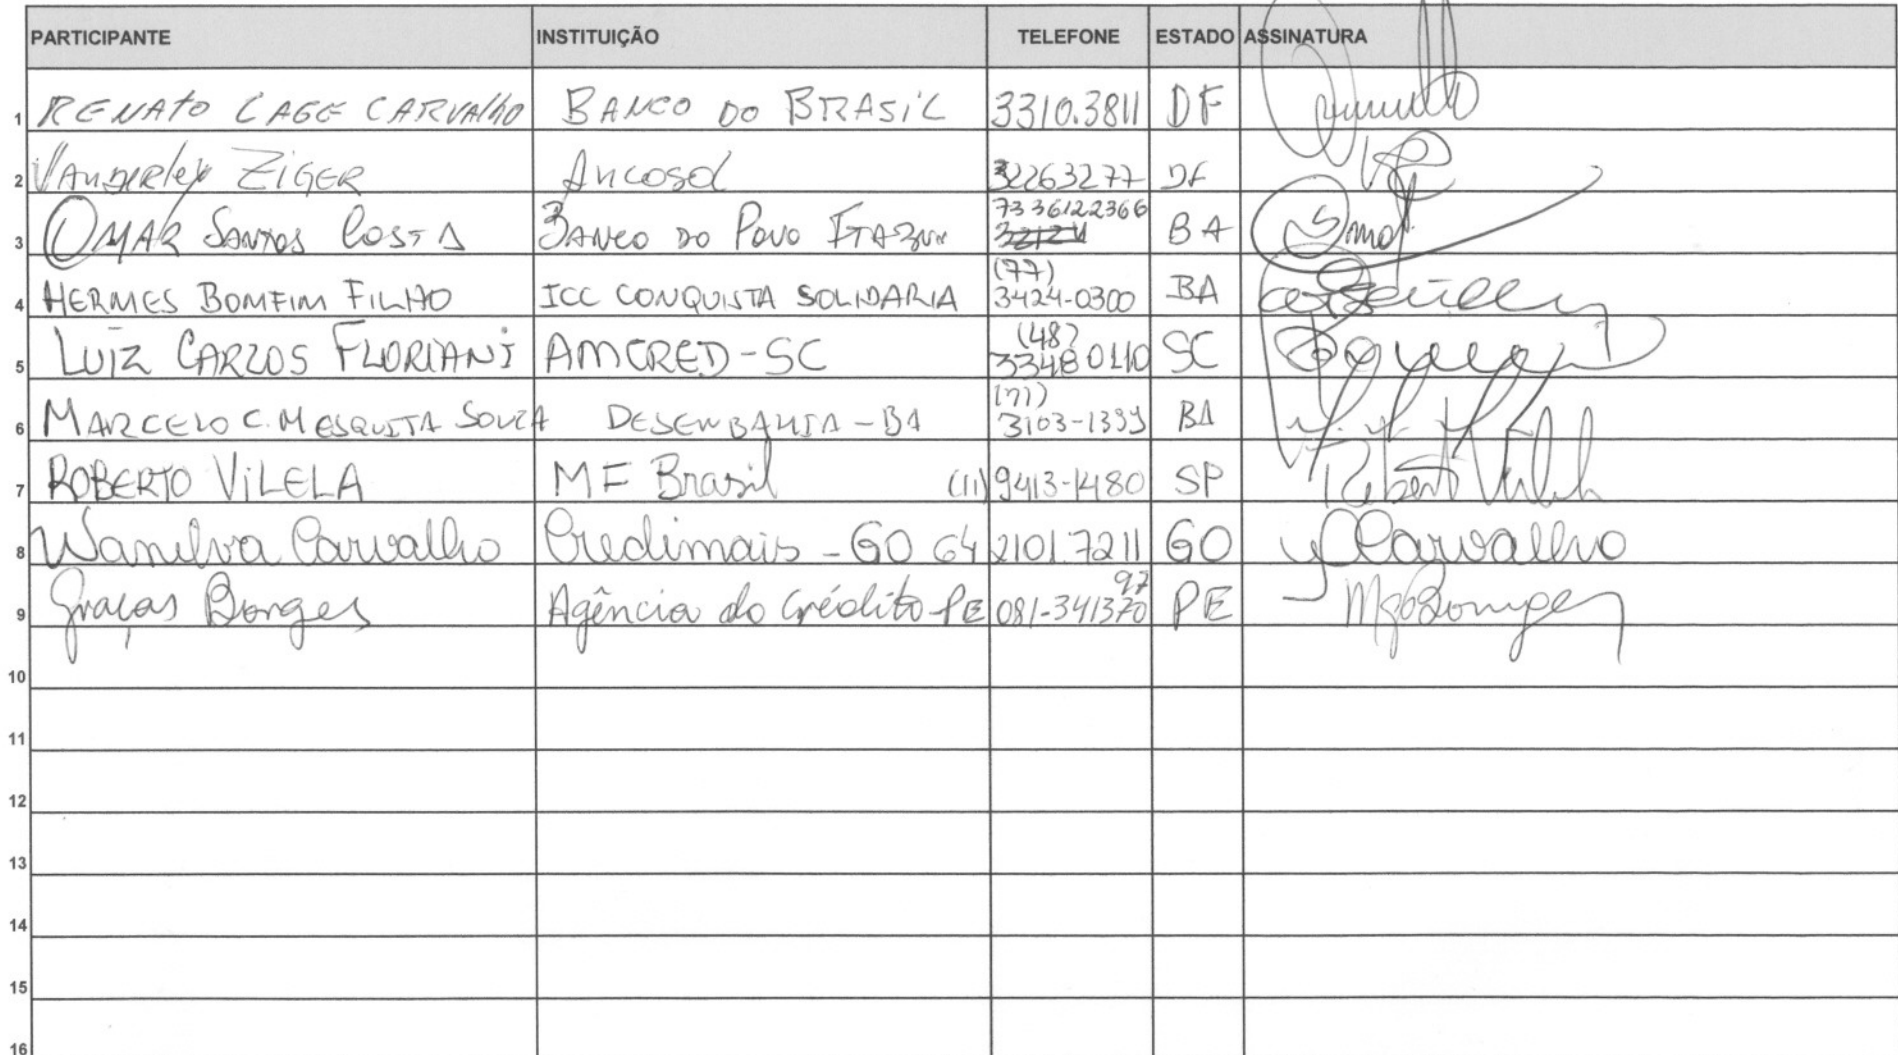 PARTICIPANTE INSTITUIÇÃO TELEFONE ESTADO ASSINATURA
1 RENATO LAGE CARVAlho BANCO DO BRASiL 3310.3811 DF
2 VANDERLEY ZiGER Ancosol 32263277 DF
3 OMAR SANTOS COSTA BANCO DO POVO 73 36122366 BA
4 HERMES BOMFIM FILHO ICC CONQUISTA SOLIDARIA (77) 3424-0300 BA
5 LUIZ CARLOS FLORIANI AMCRED-SC (48) 33480110 SC
6 MARCELO C. MESQUITA SOUZA DESENBAHIA-BA (71) 3103-1399 BA
7 ROBERTO ViLELA MF Brasil (11) 9413-1480 SP Robert Vilela
8 Wanilva Carvalho Credimais - GO 64 2101.7211 GO Carvalho
9 Graças Borges Agência do Crédito-PE 081-341370 97 PE
10
11
12
13
14
15
16